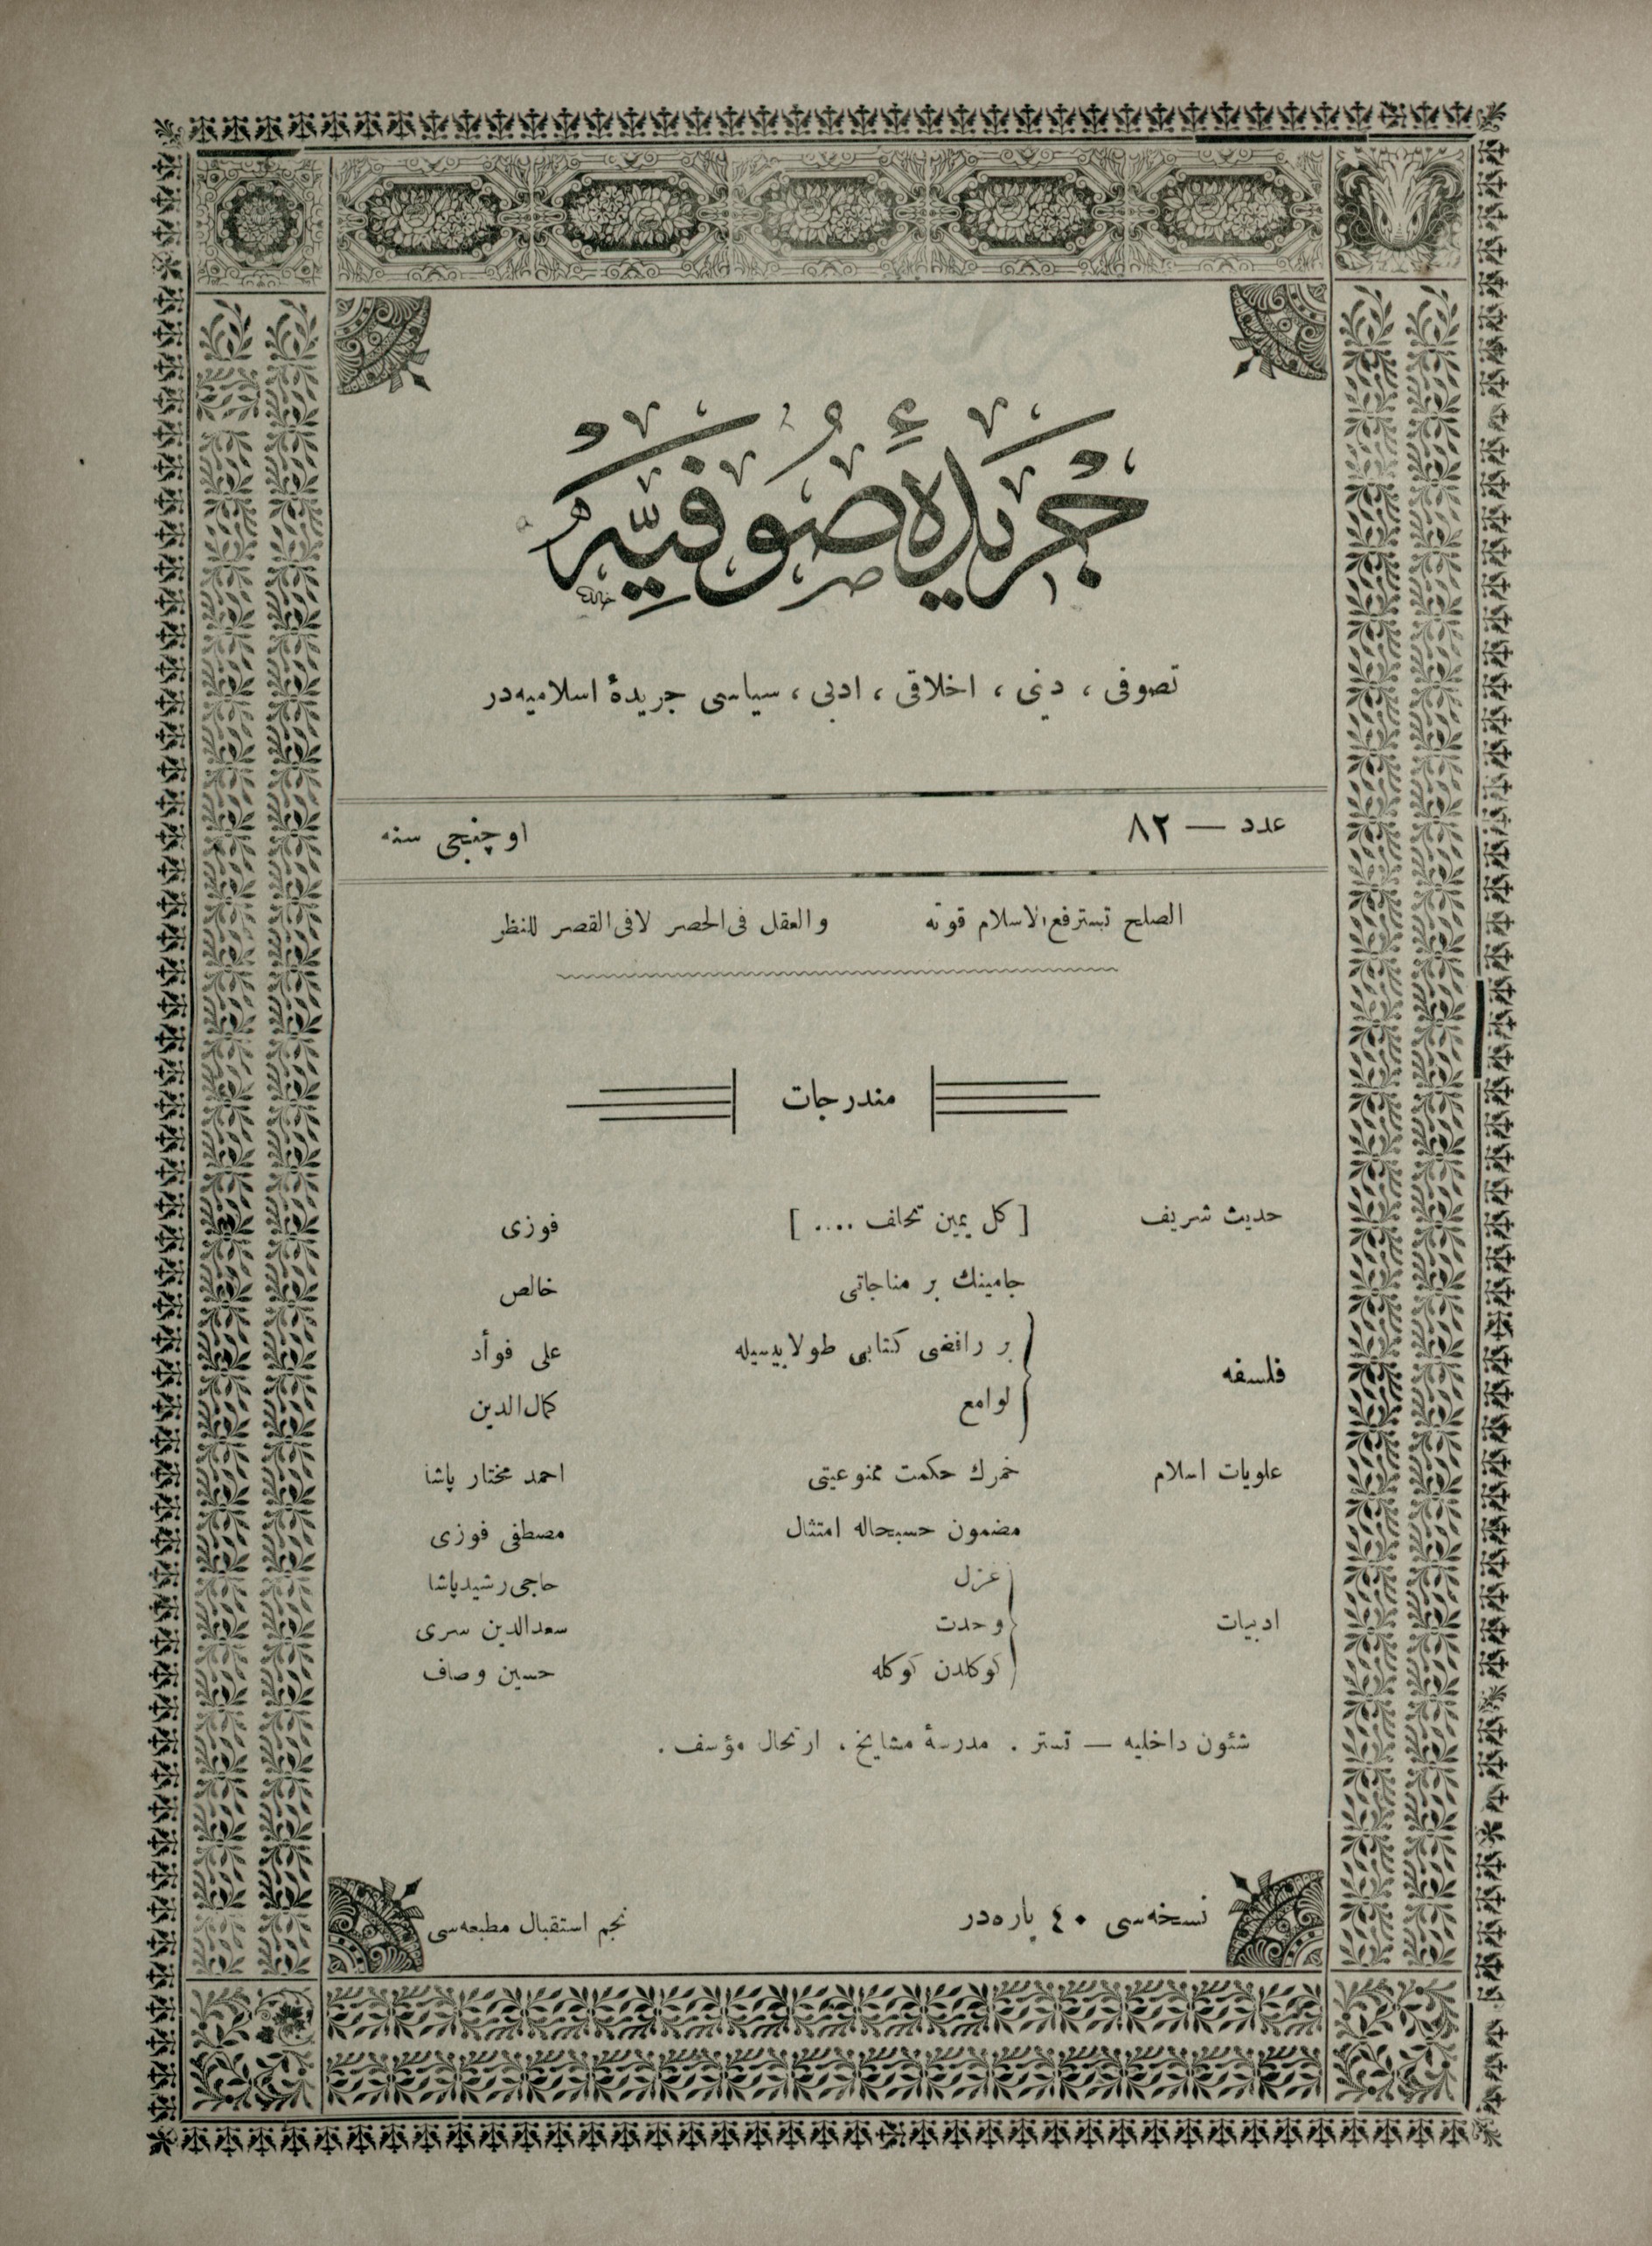 جريدۀ صوفيه
تصوفی ، دينی ، اخلاقی ، ادبی ، سياسی جريدۀ اسلاميه‌در
عدد — ٨٢ اوچنجی سنه
الصلح تسترفع الاسلام قوته والعقل فی‌الحصر لافی‌القصر للنظر
مندرجات
حديث شريف [ كل يمين تحلف .... ] فوزی
جامينك بر مناجاتی خالص
فلسفه بر رافضی كتابی طولاييسيله علی فوأد
لوامع كمال‌الدين
علويات اسلام خمرك حكمت ممنوعيتی احمد مختار پاشا
مضمون حسبحاله امتثال مصطفی فوزی
ادبيات غزل حاجی رشيدپاشا
وحدت سعدالدين سری
كوكلدن كوكله حسين وصاف
شئون داخليه — تستر . مدرسۀ مشايخ . ارتحال مؤسف .
نسخه‌سی ٤٠ پاره‌در نجم استقبال مطبعه‌سی